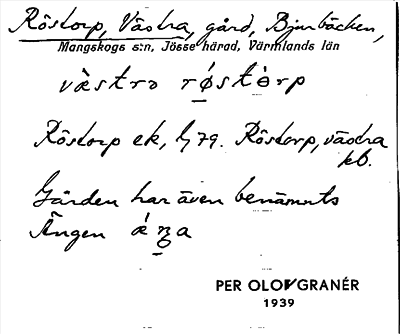 Röstorp, Västra, gård, Bjurbäcken,
Mangskogs s:n, Jösse härad, Värmlands län
västrə röstòrp
Röstorp ek, 1/79. Röstorp, västra
kb.
Gården har även benämnts
Ängen
PER OLOV GRANÉR
1939